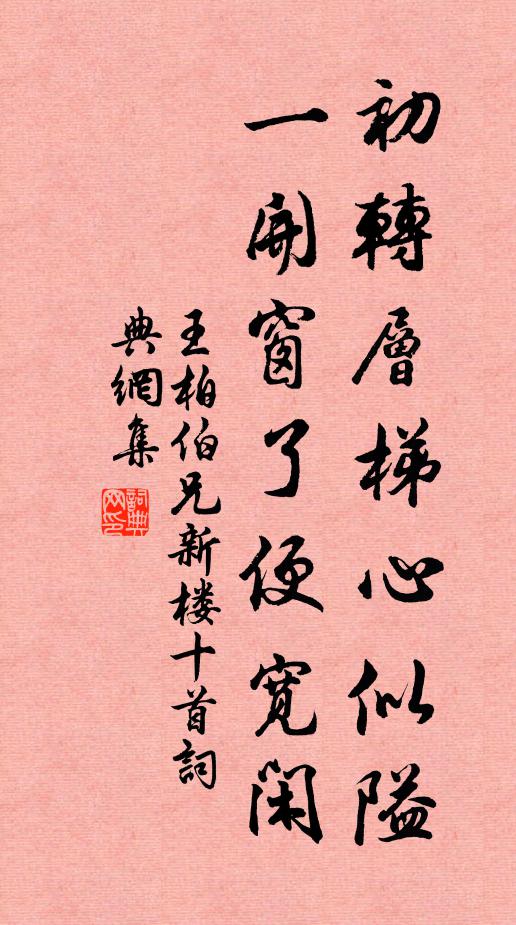 初轉層梯心似隘
一開窗了便寬閑
王柏伯兄新楼十首詞
典網集
詞典
网印